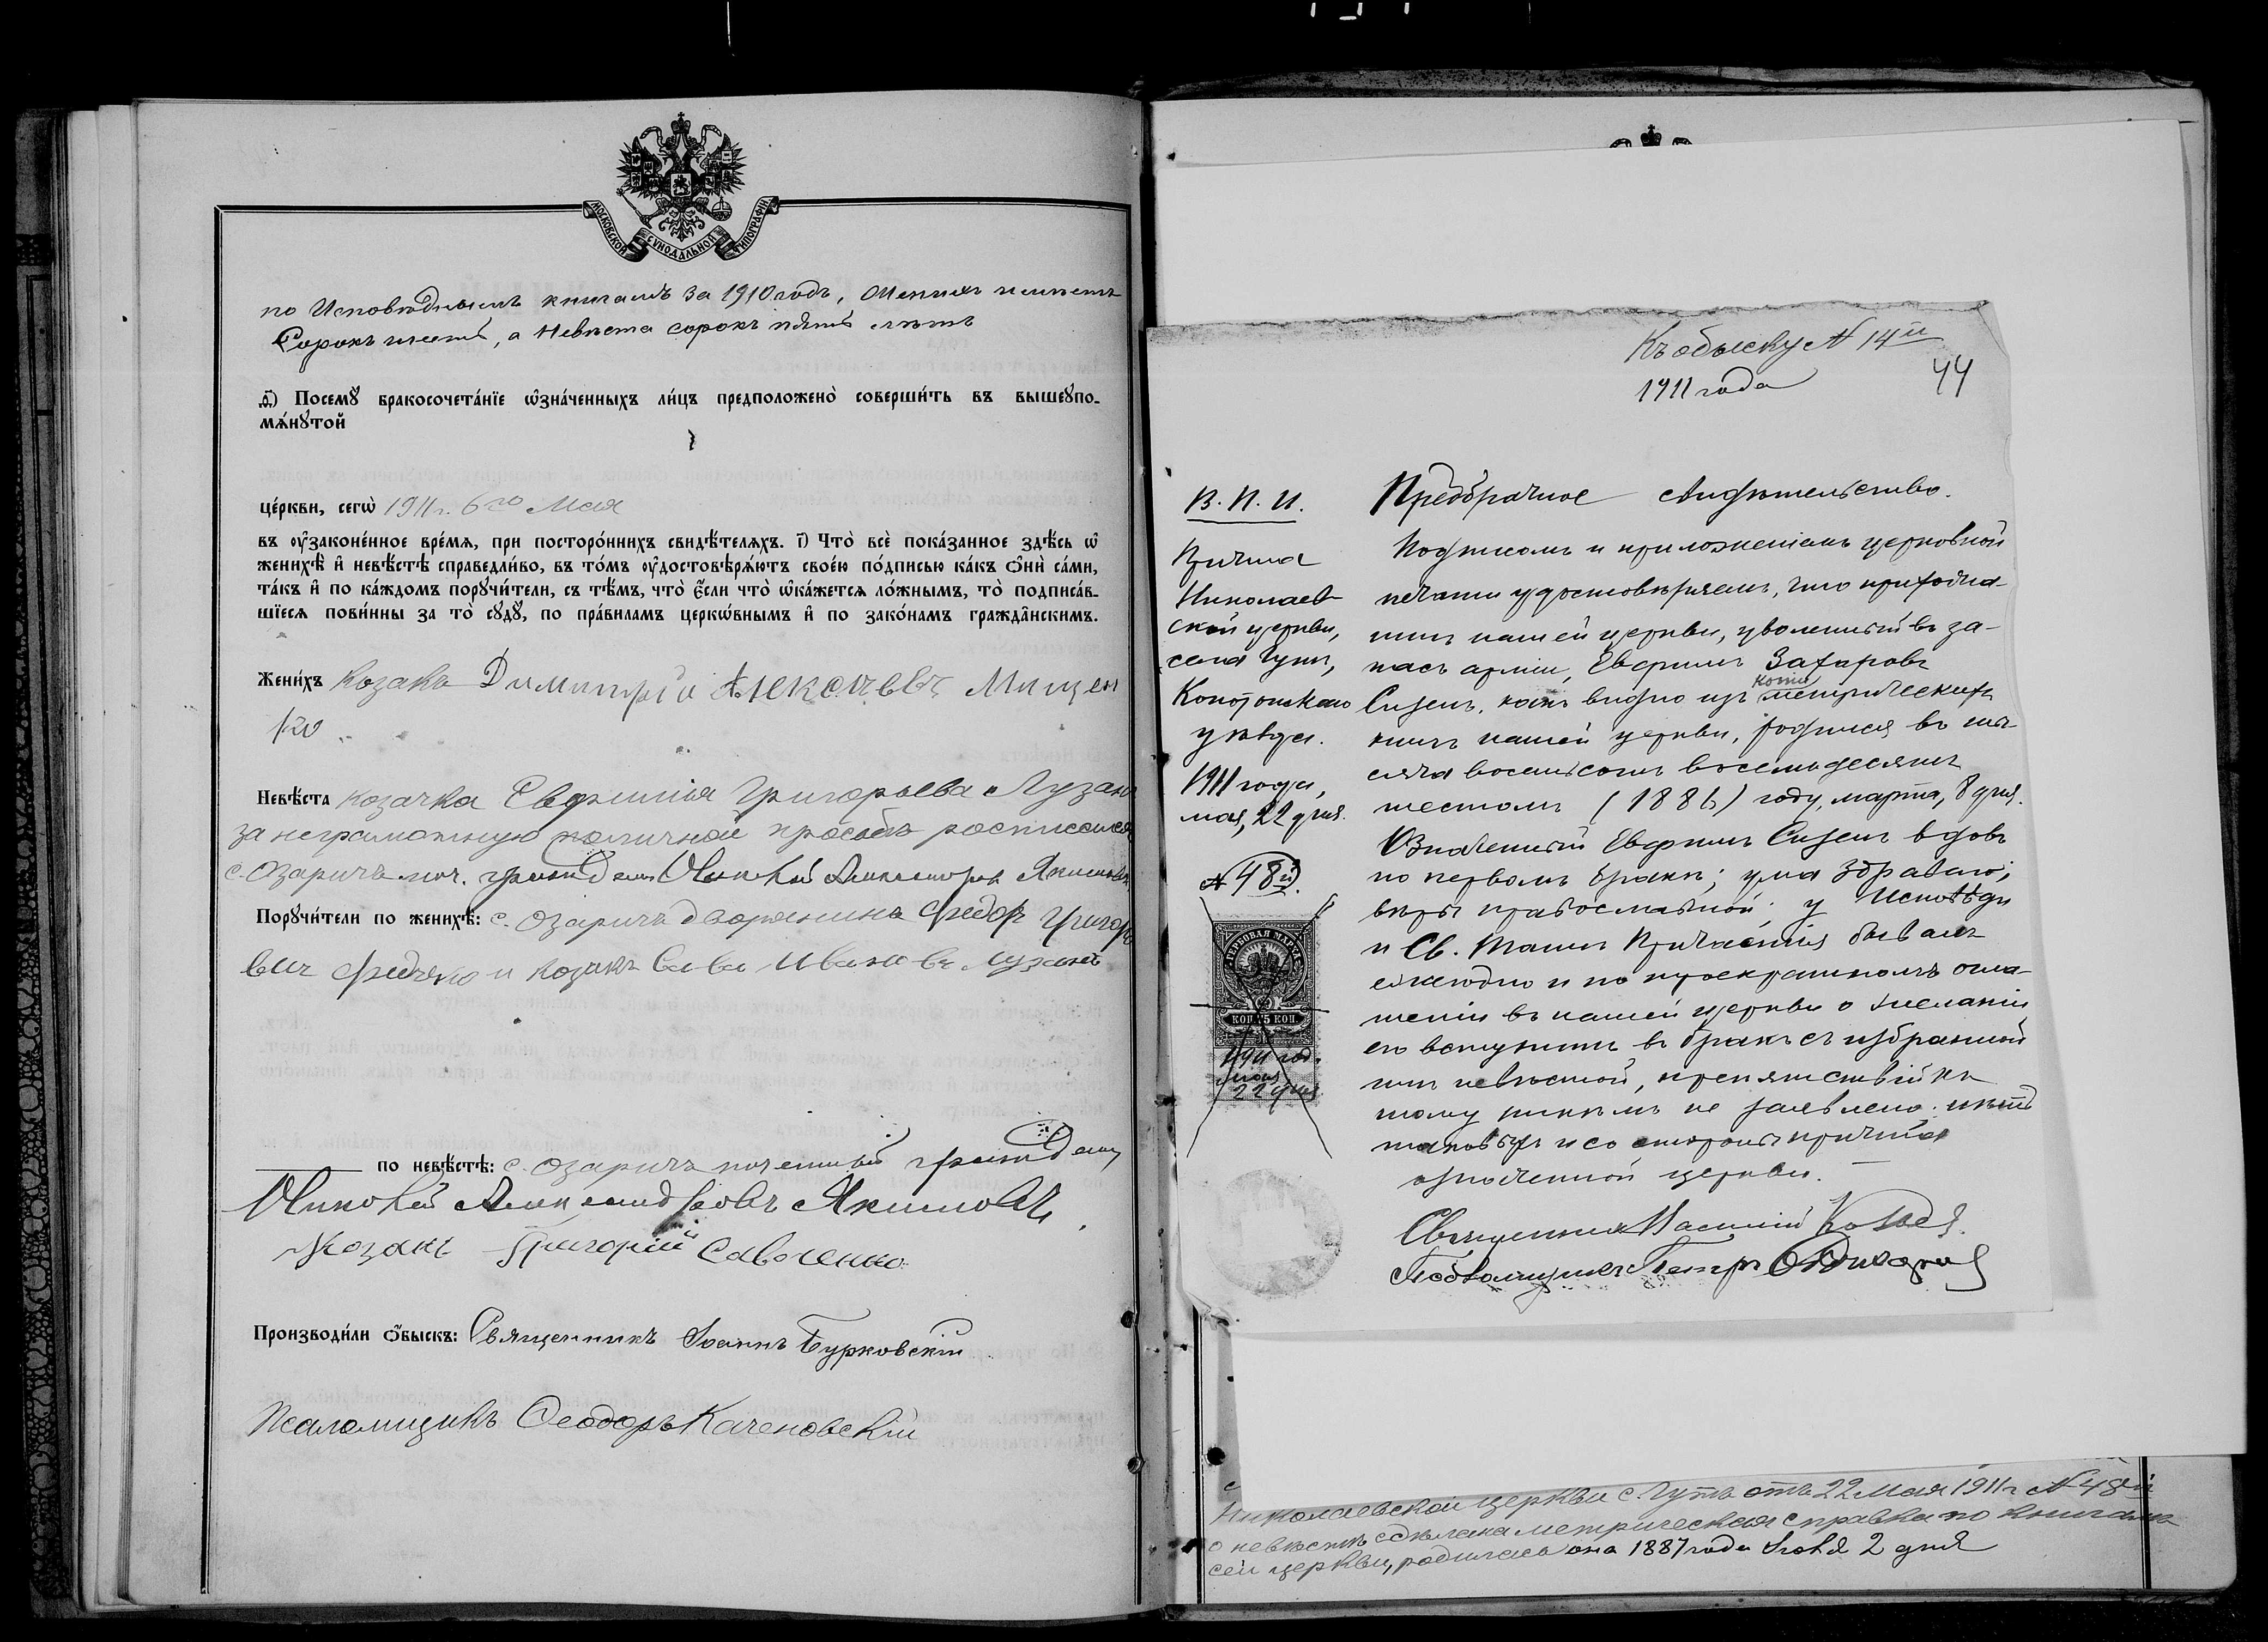 МОСКОВСКОЙ СѴНОДАЛЬНОЙ ТИПОГРАФІИ
по Исповѣднымъ книгамъ за 1910 годъ, Женихъ имѣетъ
Сорокъ шесть, а Невѣста сорокъ пять лѣтъ
д҃) Посемꙋ̀ бракосочета́нїе ѡ҆зна́ченныхъ ли́цъ предположено̀ соверши́ть въ вышеꙋпо-
мѧ́нꙋтой
це́ркви, сегѡ̀ 1911 г. 6го Мая
въ ᲂу҆законе́нное вре́мѧ, при посторо́ннихъ свидѣ́телѧхъ. і҃) Что̀ всѐ пока́занное здѣ́сь ѡ҆
женихѣ̀ и҆ невѣ́стѣ справедли́во, въ то́мъ ᲂу҆достовѣрѧ́ютъ свое́ю по́дписью ка́къ ѻ҆нѝ са́ми,
та́къ и҆ по ка́ждомъ порꙋчи́тели, съ тѣ́мъ, что̀ є҆́сли что̀ ѡ҆ка́жетсѧ ло́жнымъ, то̀ подписа́в-
шїесѧ пови́нны за то̀ сꙋдꙋ̀, по пра́виламъ церкѡ́внымъ и҆ по зако́намъ гражда̑нскимъ.
Жени́хъ Козакъ Димитрій Алексѣевъ Мищен
ко
Невѣ́ста козачка Евфимія Григорьева Лузан
за неграмотную по личной просьбѣ росписался
с. Озаричъ поч. гражден Николай Александров Якимович
Порꙋчи́тели по женихѣ̀: с. Озаричъ дворянинъ Федоръ Григорь
вич и козакъ Сава Иванов
по невѣ́стѣ: с. Озаричъ почетный гражданин
Николай Александровъ Якимович
Козакъ Григорій Савченко
Производи́ли ѻ҆́быскъ: Священникъ Іоаннъ Бурковскій
Псаломщикъ Ѳеодоръ Каченовскій
Къ обыску № 14й
1911 года
44
В. П. И.
Причта
Николаев-
ской церкви,
села Гутъ,
Конотопскаго
уѣзда.
1911 года,
мая, 22 дня.
№ 48й.
ГЕРБОВАЯ МАРКА
75 КОП.
1911 год.
мая
22 дня
Предбрачное свидѣтельство.
Подписомъ и приложеніемъ церковной
печати удостовѣряемъ, что прихожа-
нинъ нашей церкви, уволенный въ за-
пасъ арміи, Евфимъ Захаровъ
копіи
Сизенъ, какъ видно изъ метрическихъ
книгъ нашей церкви, родился въ ты-
сяча восемьсотъ восемьдесятъ
шестомъ (1886) году, марта, 8 дня.
Означенный Евфимъ Сизенъ вдовъ
по первомъ бракѣ; ума здраваго;
вѣры православной; у Исповѣди
и Св. Таинъ Причастія бываетъ
ежегодно и по троекратномъ огла-
шеніи въ нашей церкви о желаніи
его вступить въ бракъ съ избранной
имъ невѣстой, препятствій къ
тому никѣмъ не заявлено. нѣтъ
таковыхъ и со стороны причта
означенной церкви.
Священникъ Василій
Псаломщикъ Петръ
Николаевской церкви с. Гутъ отъ 22 Мая 1911 г. № 48й
о невѣстѣ сдѣлана метрическая справка по книгамъ
сей церкви, родилась она 1887 года 2 дня